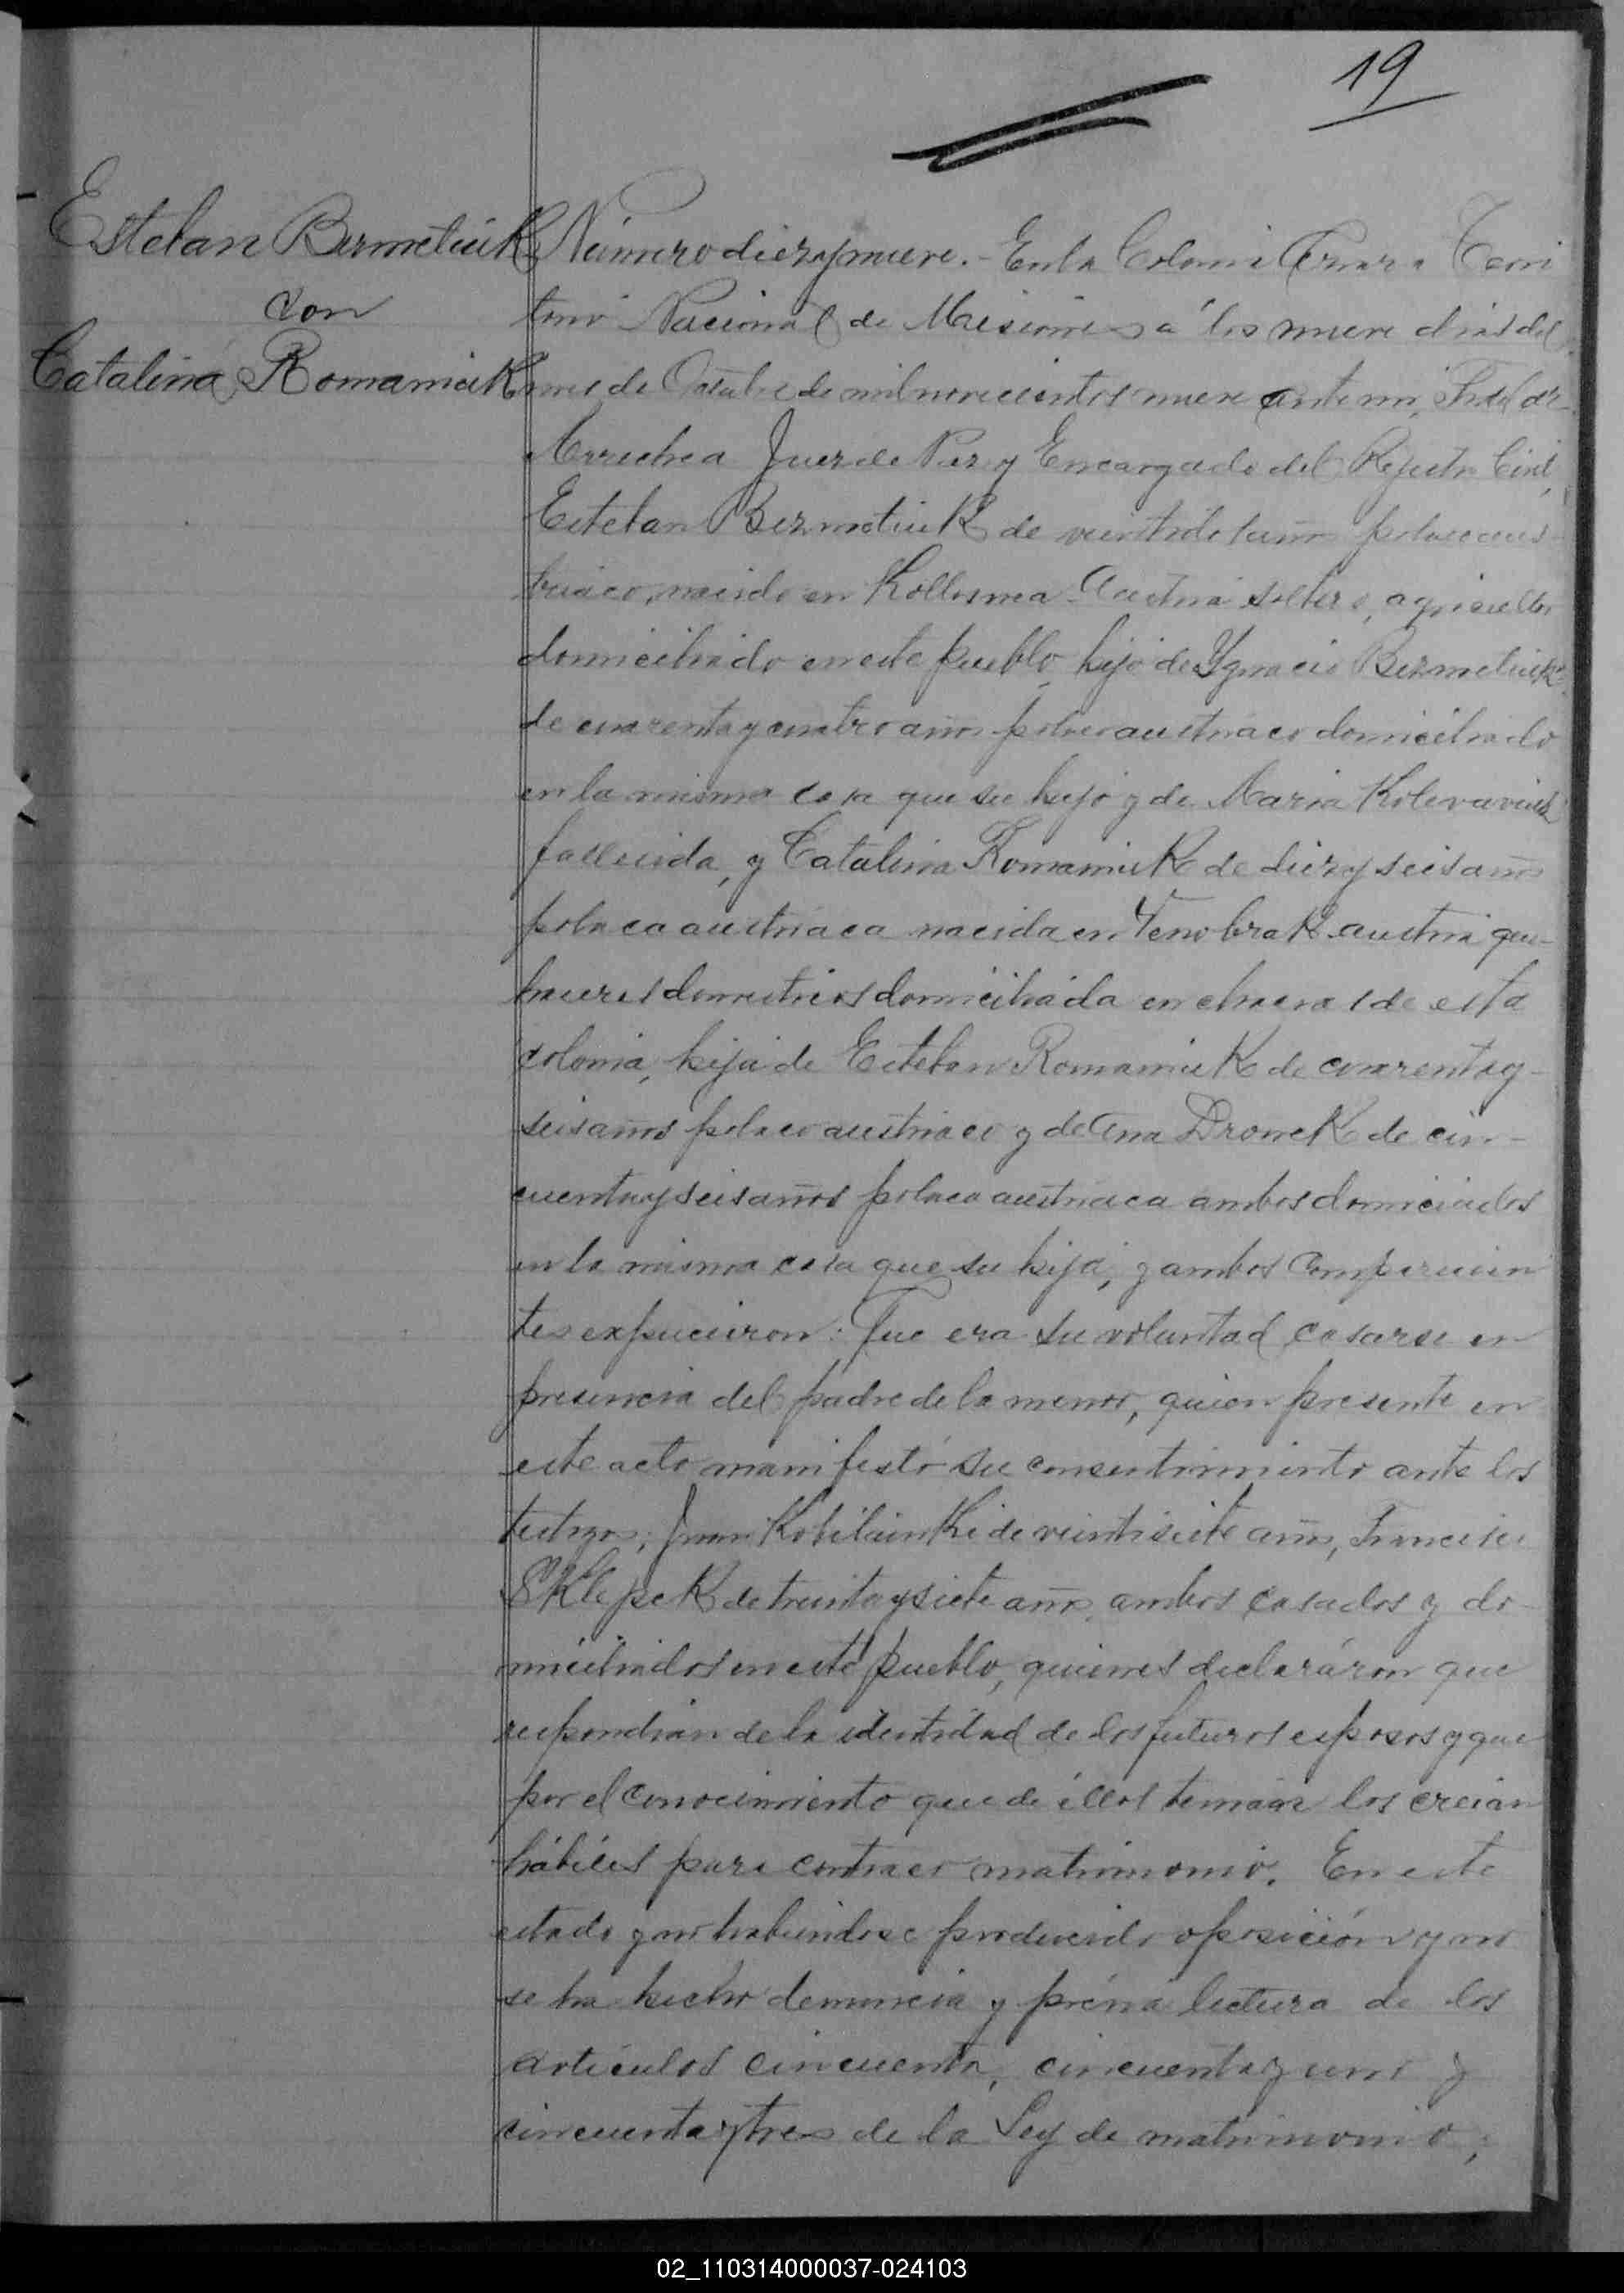 19
Esteban Bermetiuk
con
Catalina Romaniuk
Número diez y nueve. - En la Colonia Azara Terri
torio Nacional de Misiones á los nueve dias del
mes de Octubre de mil novecientos nueve ante mi, Fidel de
Arrechea Juez de Paz y Encargado del Rejistro Civil,
Esteban Bezmetiuk de veintidos años polaco aus-
triaco, nacido en Kollomea Austria soltero, agricultor
domiciliado en este pueblo, hijo de Ygnacio Bezmetiuk
de cuarenta y cuatro años polaco austriaco domiciliado
en la misma casa que su hijo y de Maria
fallecida, y Catalina Romaniuk de diez y seis años
polaca austriaca nacida en austria que-
haceres domesticos domiciliada en chacras de esta
colonia, hija de Esteban Romaniuk de cuarenta y
seis años polaco austriaco y de Ana Dronek de cin-
cuenta y seis años polaca austriaca ambos domiciados
en la misma casa que su hija, y ambos comparecien
tes expucieron: Que era su voluntad casarse en
presencia del padre de la menor, quien presente en
este acto manifestó su consentimiento ante los
testigos; Juan de veintisiete años, Francisco
Sklepek de treinta y siete años, ambos casados y do-
miciliados en este pueblo, quienes declaráron que
respondian de la identidad de los futuros esposos y que
por el conocimiento que de éllos tenian los creian
hábiles para contraer matrimonio. En este
estado y no habiendose producido oposición y no
se ha hecho denuncia y prévia lectura de los
artículos cincuenta, cincuenta y uno y
cincuenta y tres de la Ley de matrimonio;
02_110314000037-024103